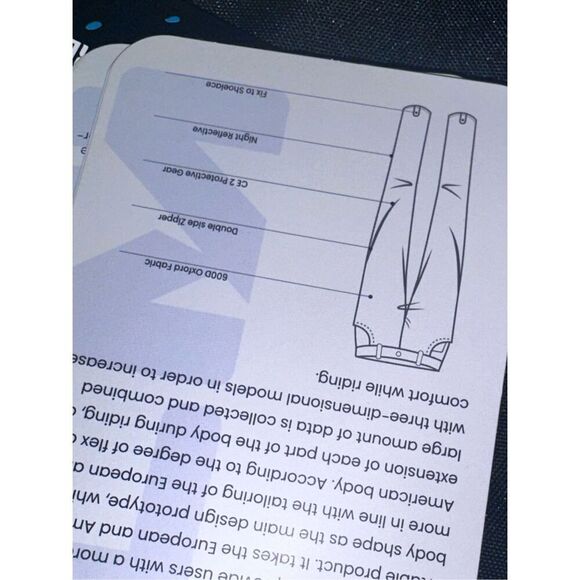 vide users with a more
table product. It takes the European and Am
body shape as the main design prototype, whi
more in line with the tailoring of the European a
American body. According to the degree of flex
extension of each part of the body during riding,
large amount of data is collected and combined
with three-dimensional models in order to increase
comfort while riding.
600D Oxford Fabric
Double side Zipper
CE 2 Protective Gear
Night Reflective
Fix to Shoelace